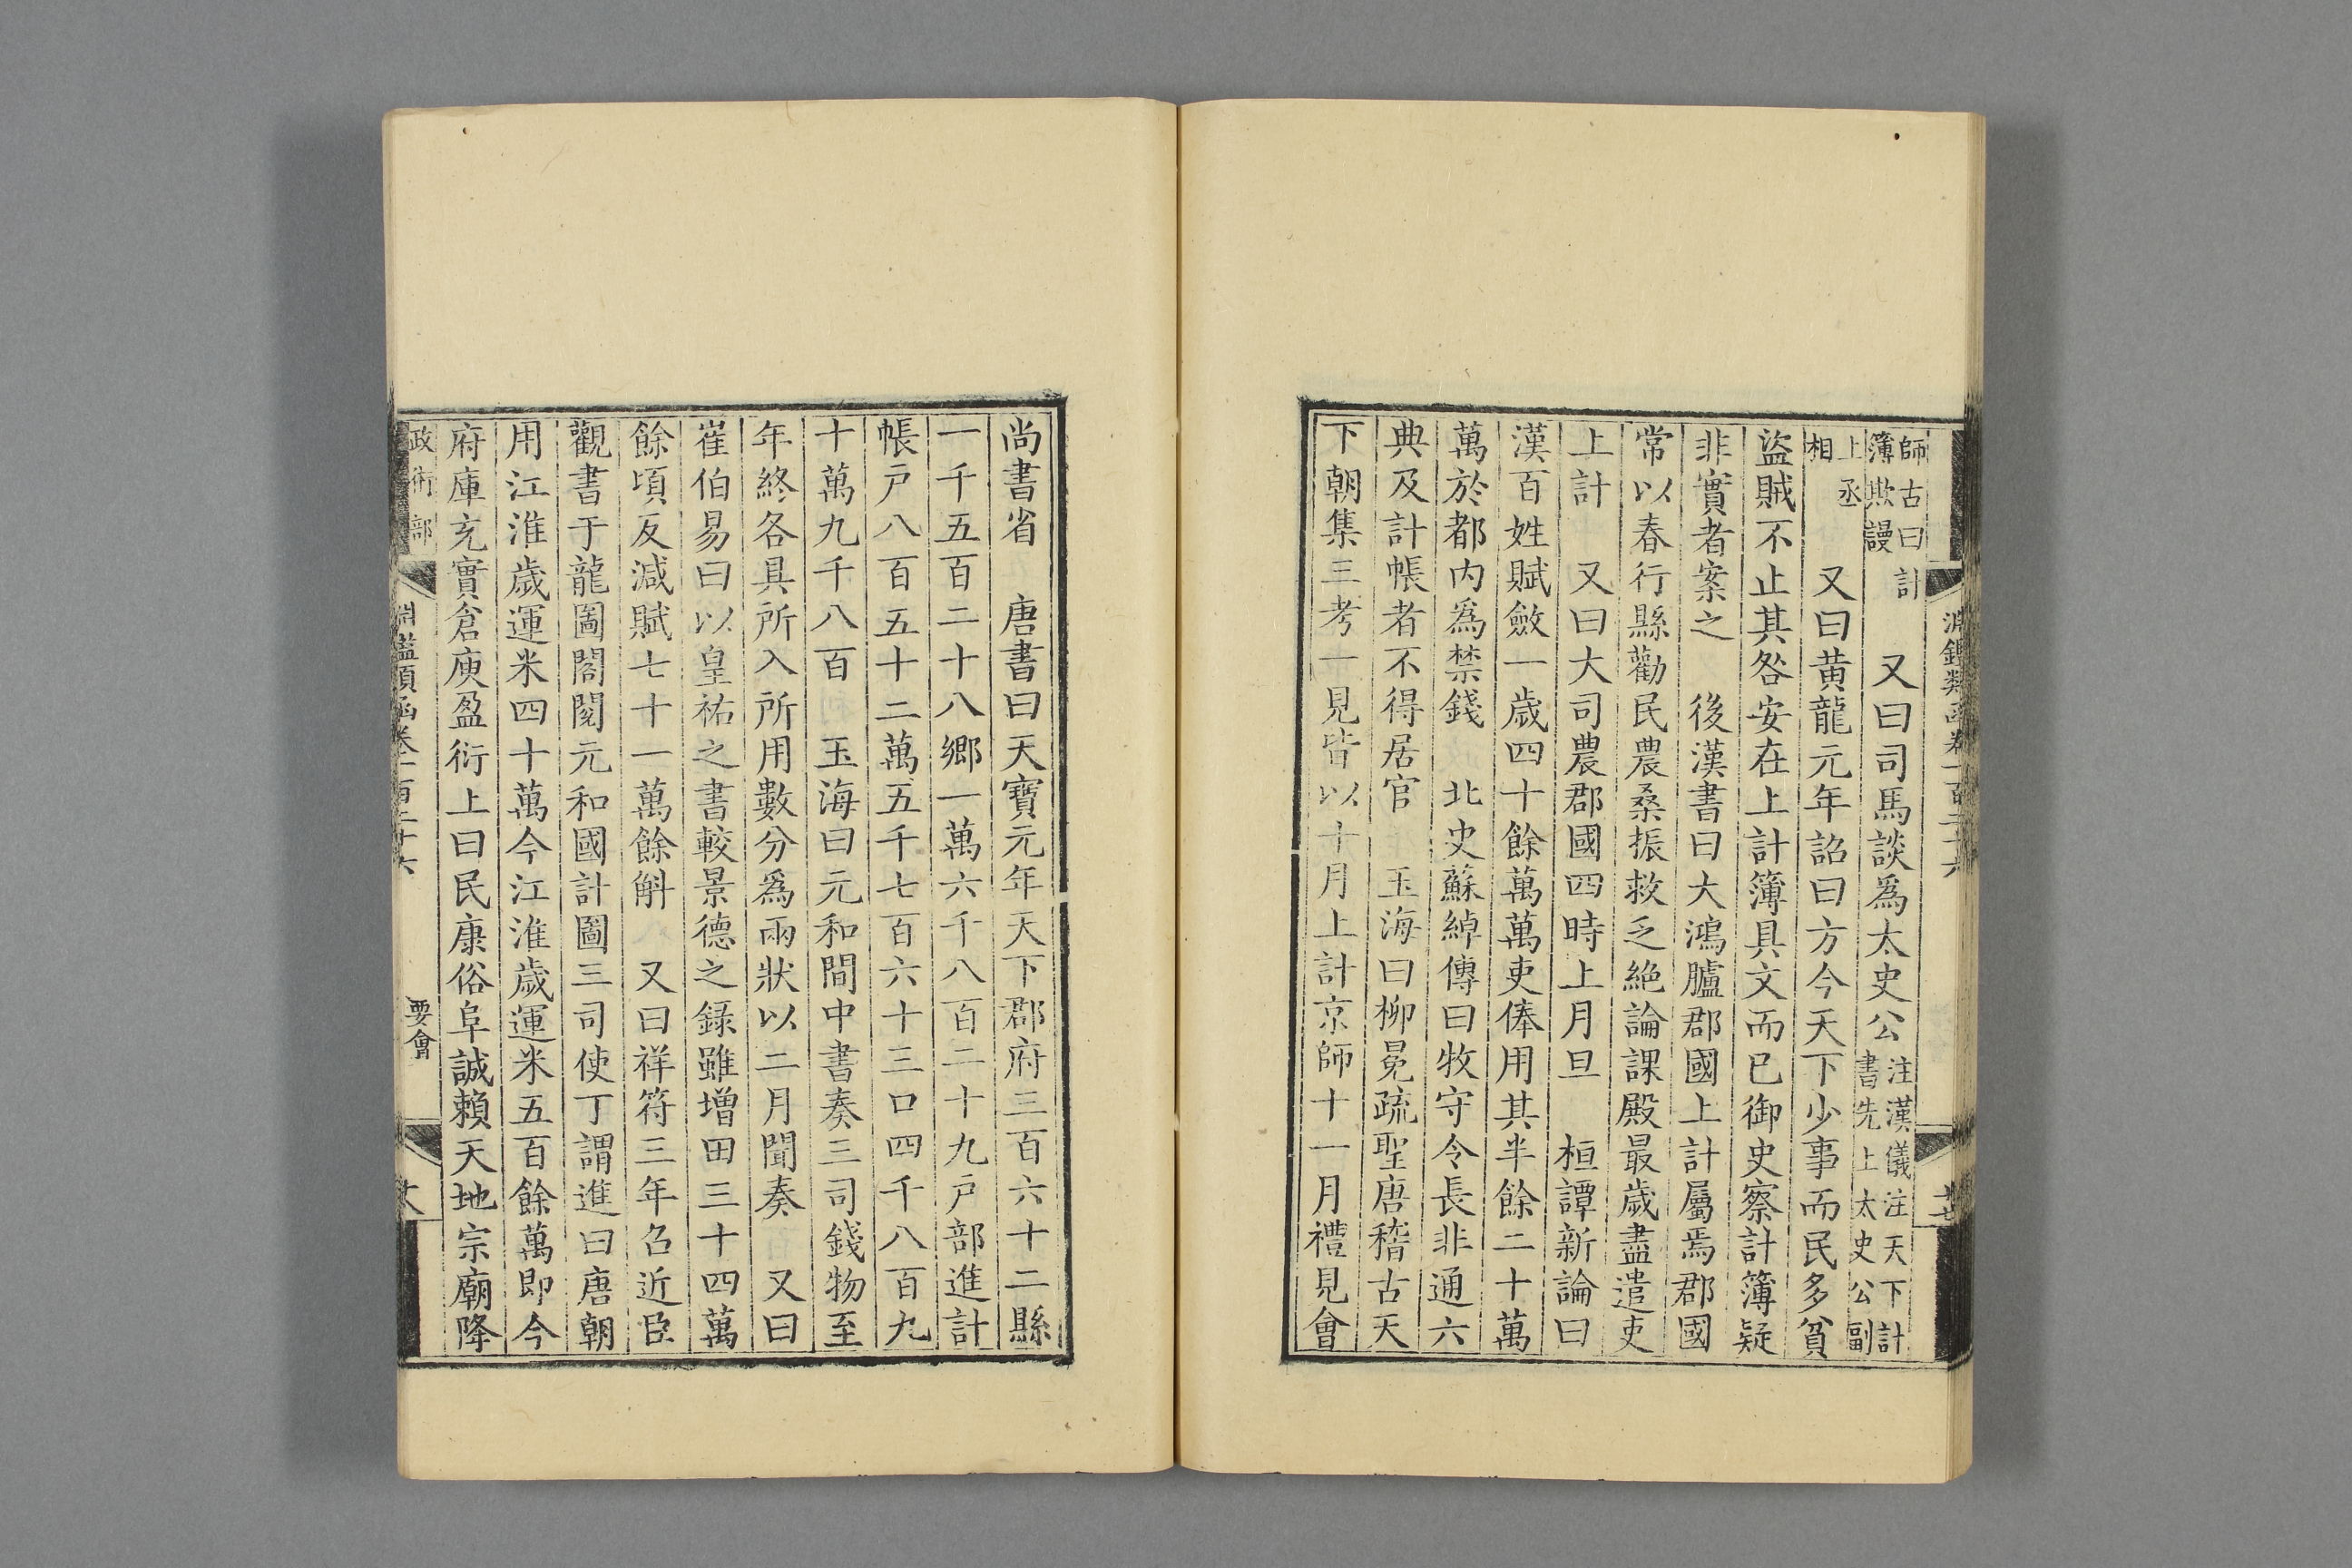 淵鑑類函卷一百二十六
師古曰計
簿欺謾　又曰司馬談爲太史公注漢儀注天下計
書先上太史公副
上丞
相　又曰黃龍元年詔曰方今天下少事而民多貧
盜賊不止其咎安在上計簿具文而已御史察計簿疑
非實者案之　後漢書曰大鴻臚郡國上計屬焉郡國
常以春行縣勸民農桑振救乏絶論課殿最歲盡遣吏
上計　又曰大司農郡國四時上月旦　桓譚新論曰
漢百姓賦斂一歲四十餘萬萬吏俸用其半餘二十萬
萬於都內爲禁錢　北史蘇綽傳曰牧守令長非通六
典及計帳者不得居官　玉海曰柳冕疏聖唐稽古天
下朝集三考一見皆以十月上計京師十一月禮見會
尚書省　唐書曰天寶元年天下郡府三百六十二縣
一千五百二十八鄉一萬六千八百二十九戶部進計
帳戶八百五十二萬五千七百六十三口四千八百九
十萬九千八百　玉海曰元和間中書奏三司錢物至
年終各具所入所用數分爲兩狀以二月聞奏　又曰
崔伯易曰以皇祐之書較景德之錄雖增田三十四萬
餘頃反減賦七十一萬餘斛　又曰祥符三年召近臣
觀書于龍圖閣閱元和國計圖三司使丁謂進曰唐朝
用江淮歲運米四十萬今江淮歲運米五百餘萬卽今
府庫充實倉庾盈衍上曰民康俗阜誠賴天地宗廟降
政術部　淵鑑類函卷一百二十六　要會